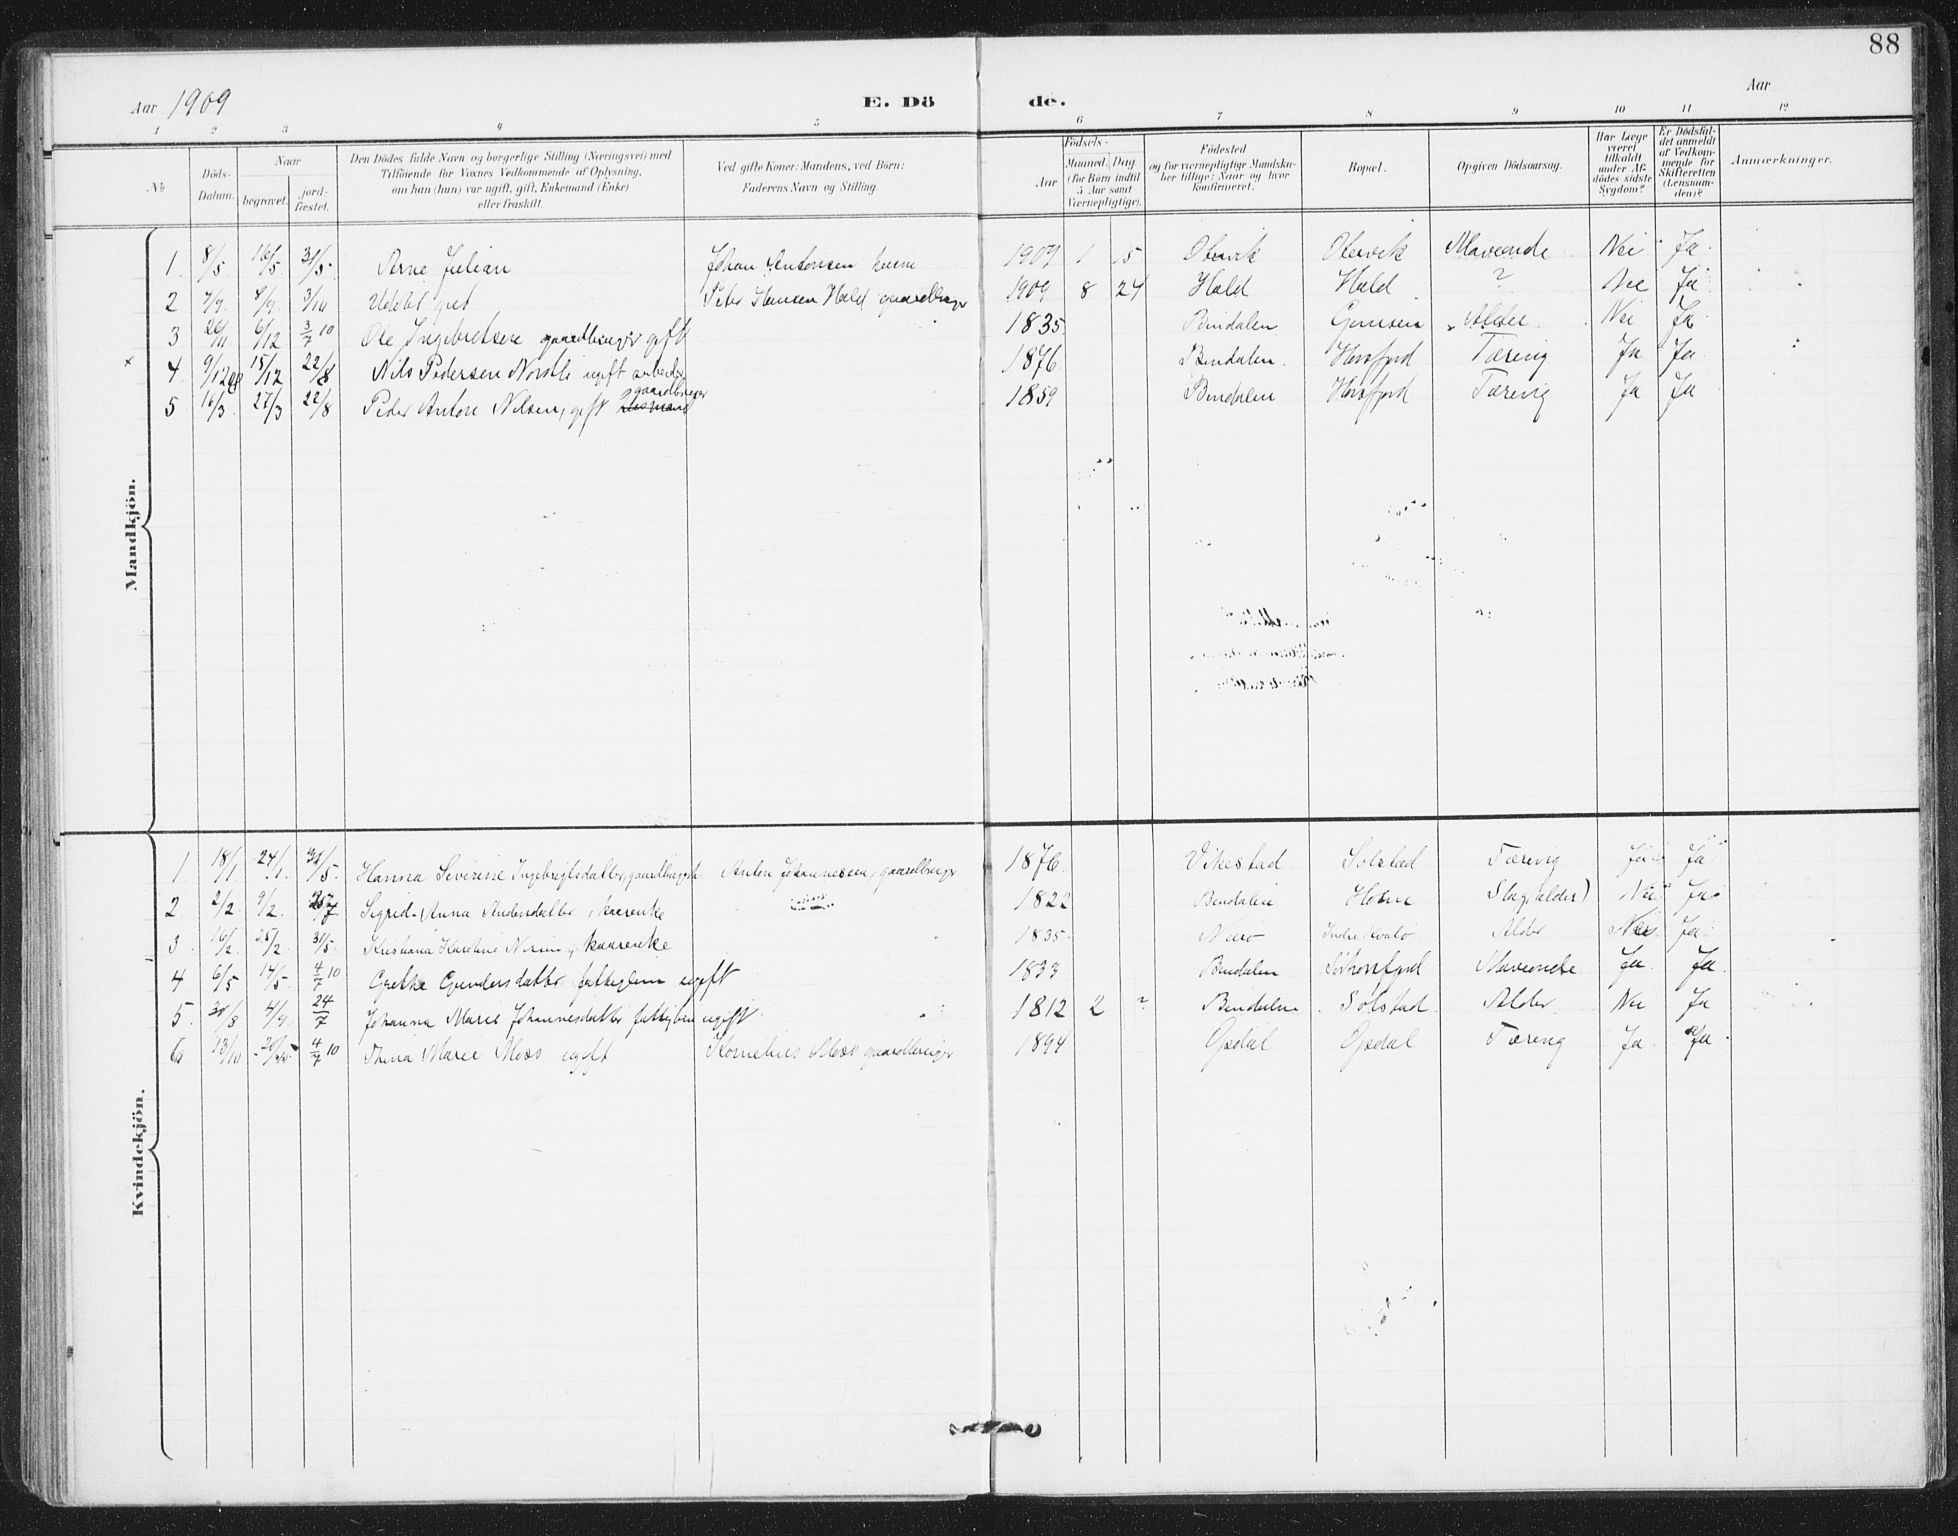 88
Aar 1909
E. Dö de.
Aar
1 2 3 4 5 6 7 8 9 10 11 12
No
Döds-Datum.
Naar
begravet.
jord-fæstet.
Den Dödes fulde Navn og borgerlige Stilling (Næringsvei) med
Tilföiende for Voxnes Vedkommende af Oplysning,
om han (hun) var ugift, gift, Enkemand (Enke)
eller fraskilt.
Ved gifte Koner: Mandens, ved Börn:
Faderens Navn og Stilling.
Födsels-
Aar
Maaned. Dag
(for Börn indtil
5 Aar samt
Værnepligtige).
Födested
og for værnepligtige Mandska-
ber tillige: Naar og hvor
konfirmeret.
Bopæl.
Opgiven Dödsaarsag.
Har Læge
været
tilkaldt
under Af-
dödes sidste
Sygdom?
Er Dödsfal-
det anmeldt
af Vedkom-
mende for
Skifteretten
(Lensman-
den)?
Anmærkninger.
Mandkjön.
1 8/5 16/5 31/5 Arne Julian Johan Antonsen 1909 1 15 Otervik Otervik Maveonde Nei Ja
2 7/9 8/9 3/10 Udöbt gut Peter Hansen Hald gaardbruger 1909 8 24 Hald Hald ? Nei Ja
3 26/11 6/12 3/7 10 Ole Ingebretsen gaardbruger gift 1835 Bindalen Alder Nei Ja
x 4 9/12 08 15/12 22/8 Nils Pedersen Norsli ugift arbeider 1876 Bindalen Horsfjord Tæring Ja Ja
5 16/3 27/3 22/8 Peder Anton Nilsen, gift gaardbruger 1859 Bindalen Horsfjord Tæring Ja Ja
Kvindekjön.
1 18/1 24/1 31/5 Hanna Severine Ingebrigtsdatter, Anton Johannessen, gaardbruger 1876 Vikestad Solstad Tæring Ja Ja
2 2/2 9/2 Sigrid Anna Andersdatter, kaarenke 1822 Bindalen Holm Slag(alder) Nei Ja
3 16/2 25/2 31/5 Kristiana Karoline kaarenke 1835 Nærö Indre Kvalö Alder Nei Ja
4 6/5 14/5 4/7 10 Grethe Gundersdatter fattiglem ugift 1833 Bindalen Sörhorsfjord Maveonde Ja Ja
5 30/8 4/9 24/7 Johanna Marie Johannesdatter fattiglem ugift 1812 2 ? Bindalen Solstad Alder Nei Ja
6 13/10 4/7 10 Thina Marie Moss ugift Kornelius Moss gaardbruger 1894 Opdal Opdal Tæring Ja Ja